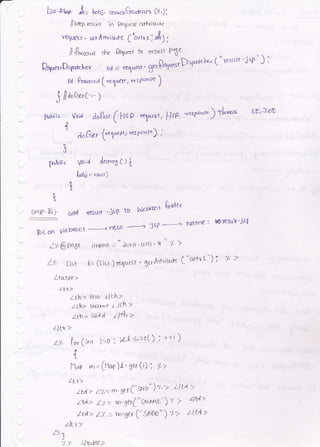 List<Map> l = hobj.searchStudents(s);
//keep result in Request attribute
request.setAttribute("attr1", l);
//forward the Request to result page
RequestDispatcher rd = request.getRequestDispatcher("result.jsp");
rd.forward(request, response)
} //doGet(--)
public void doPost(HSP request, HSR response) throws SE, IOE
{
doGet(request, response);
}
public void destroy(){
hobj = null;
}
}
step-xi> add result.jsp to WebRoot folder
R.C on WebRoot → new → JSP → name: result.jsp
<%@page import = "java.util.*" %>
<% List l=(List)request.getAttribute("attr1"); %>
<table>
<tr>
<th> sno </th>
<th> sname </th>
<th> sadd </th>
</tr>
<% for(int i=0; i<l.size(); ++i)
{
Map m=(Map)l.get(i); %>
<tr>
<td> <%= m.get("SNO") %> </td>
<td> <%= m.get("SNAME") %> </td>
<td> <%= m.get("SADD") %> </td>
</tr>
<% }
%> </table>